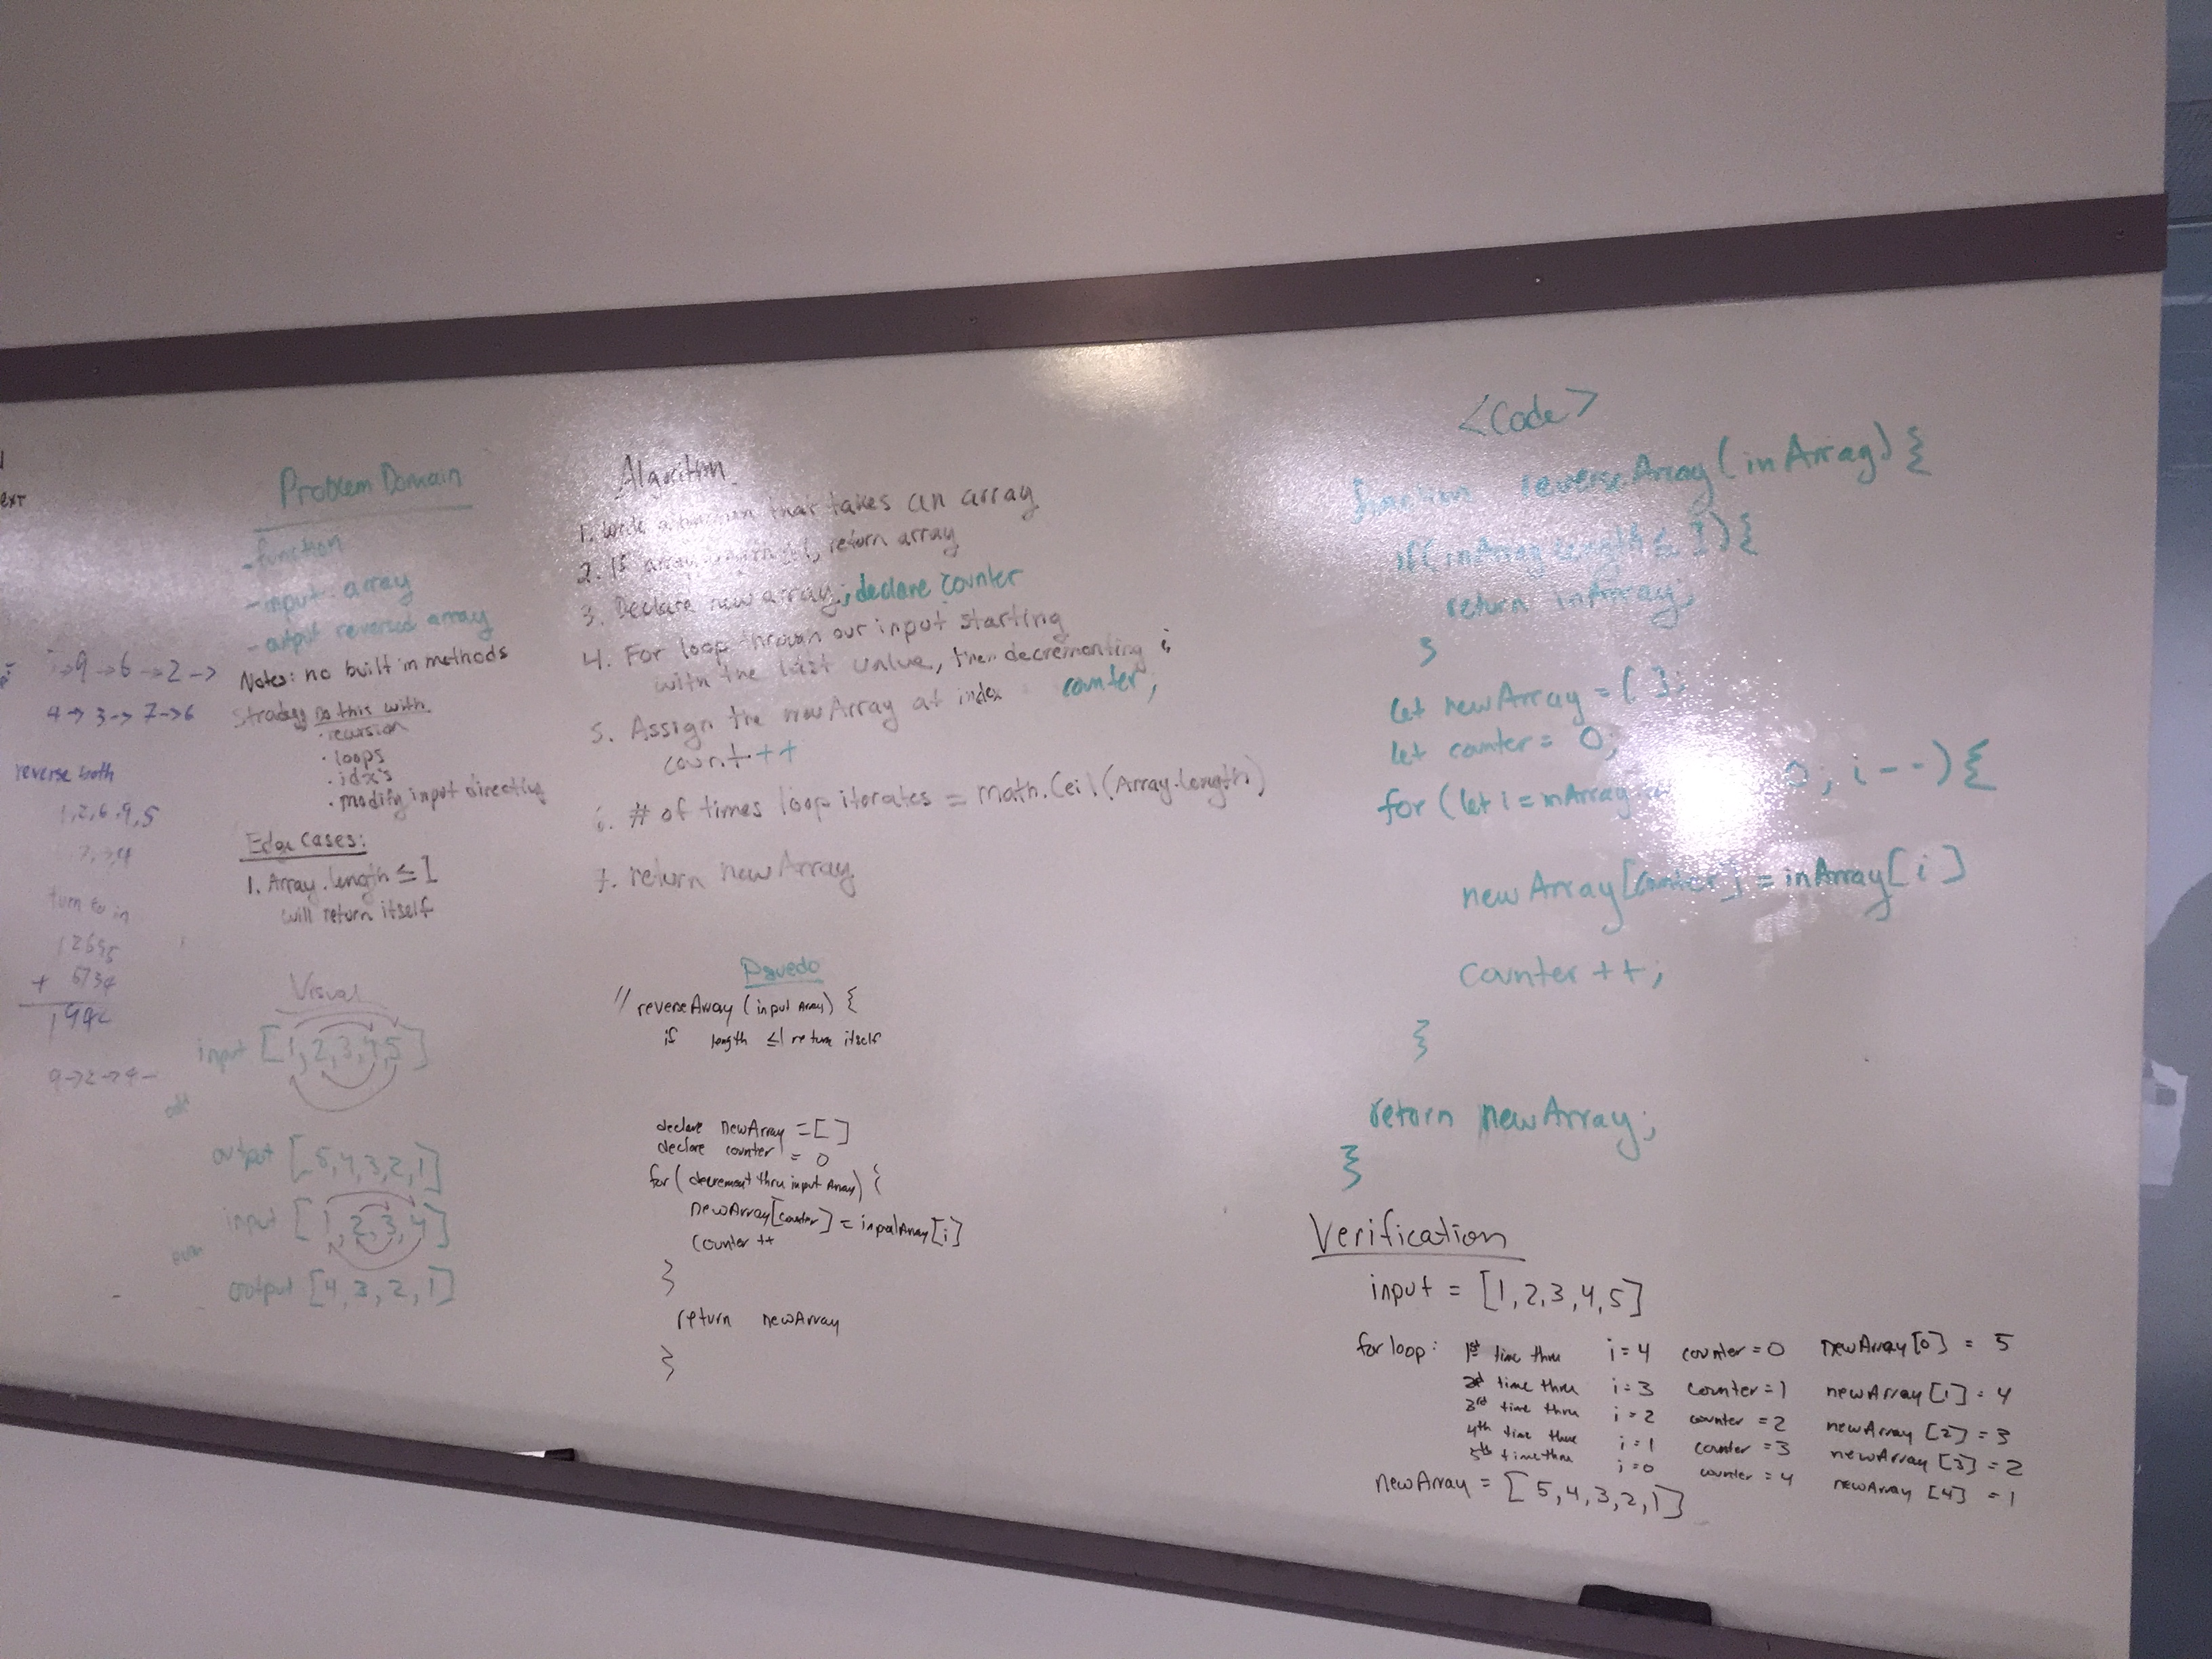 ext
9 → 6 → 2 →
4 → 3 → 7 → 6
reverse both
1,2,6,9,5
turn to in
12695
+ 6734
9 → 2 → 4 -
Problem Domain
- function
- input array
- output reversed array
Notes: no built in methods
Strategy Do this with
· recursion
· loops
· idx's
· modify input directly
Edge Cases:
1. Array.length ≤ 1
will return itself
Visual
input [1,2,3,4,5]
odd
output [5,4,3,2,1]
input [1,2,3,4]
even
output [4,3,2,1]
Algorithm
1. Write a function that takes an array
2. If array.length ≤ 1, return array
3. Declare new array; declare counter
4. For loop through our input starting
with the last value, then decrementing i
5. Assign the newArray at index counter,
count++
6. # of times loop iterates = math.Ceil(Array.length)
7. return newArray
Psuedo
// reverseArray (input Array) {
if length ≤1 return itself
declare newArray = [ ]
declare counter = 0
for ( decrement thru input Array) {
newArray[counter] = inputArray[i]
counter ++
}
return newArray
}
<Code>
function reverseArray(inArray) {
if( inArray.length ≤ 1) {
return inArray;
}
let newArray = [ ];
let counter = 0;
for (let i = inArray 0; i--) {
newArray[counter] = inArray[i]
counter ++;
}
return newArray;
}
Verification
input = [1,2,3,4,5]
for loop: 1st time thru i = 4 counter = 0 newArray[0] = 5
2nd time thru i = 3 counter = 1 newArray[1] = 4
3rd time thru i = 2 counter = 2 newArray[2] = 3
4th time thru i = 1 counter = 3 newArray[3] = 2
5th time thru i = 0 counter = 4 newArray[4] = 1
newArray = [5,4,3,2,1]